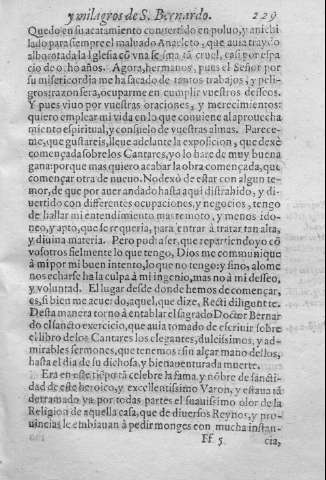 y milagros de S. Bernardo. 229
Quedo en su acatamiento conuertido en poluo, y anichi
lado para siempre el maluado Anacleto, que auia traydo
alborotada la Iglesia cõ vna scisma tã cruel, casi por espa
cio de ocho años. Agora, hermanos, pues el Señor por
su misericordia me ha sacado de tantos trabajos, y peli-
gros: razon sera, ocuparme en cumplir vuestros desseos.
Y pues viuo por vuestras oraciones, y merecimientos:
quiero emplear mi vida en lo que conuiene al aprouecha
miento espiritual, y consuelo de vuestras almas. Parece-
me, que gustareis, lleue adelante la exposicion, que dexè
començada sobre los Cantares, yo lo hare de muy buena
gana: porque mas quiero acabar la obra començada, que
començar otra de nueuo. No dexò de estar con algun te-
mor, de que por auer andado hasta aqui distrahido, y di-
uertido con differentes ocupaciones, y negocios, tengo
de hallar mi entendimiento mas remoto, y menos ido-
neo, y apto, que se requeria, para entrar à tratar tan alta,
y diuina materia. Pero podra ser, que repartiendo yo cõ
vosotros fielmente lo que tengo, Dios me communique
à mi por mi buen intento, lo que no tengo: y sino, alome
nos echarse ha la culpa à mi ingenio, mas no à mi desseo,
y voluntad. El lugar desde donde hemos de començar,
es, si bien me acuerdo, aquel, que dize, Recti diligunt te.
Desta manera torno à entablar el sagrado Doctor Bernar
do el sancto exercicio, que auia tomado de escriuir sobre
el libro de los Cantares los elegantes, dulcissimos, y ad-
mirables sermones, que tenemos: sin alçar mano dellos,
hasta el dia de su dichosa, y bienauenturada muerte.
Era en este tiẽpo tã celebre la fama, y nõbre de sancti-
dad de este heroico, y excellentissimo Varon, y estaua tã
detramado ya por todas partes el suauissimo olor de la
Religion de aquella casa, que de diuersos Reynos, y pro-
uincias le embiauan à pedir monges con mucha instan-
Ff 5 cia,